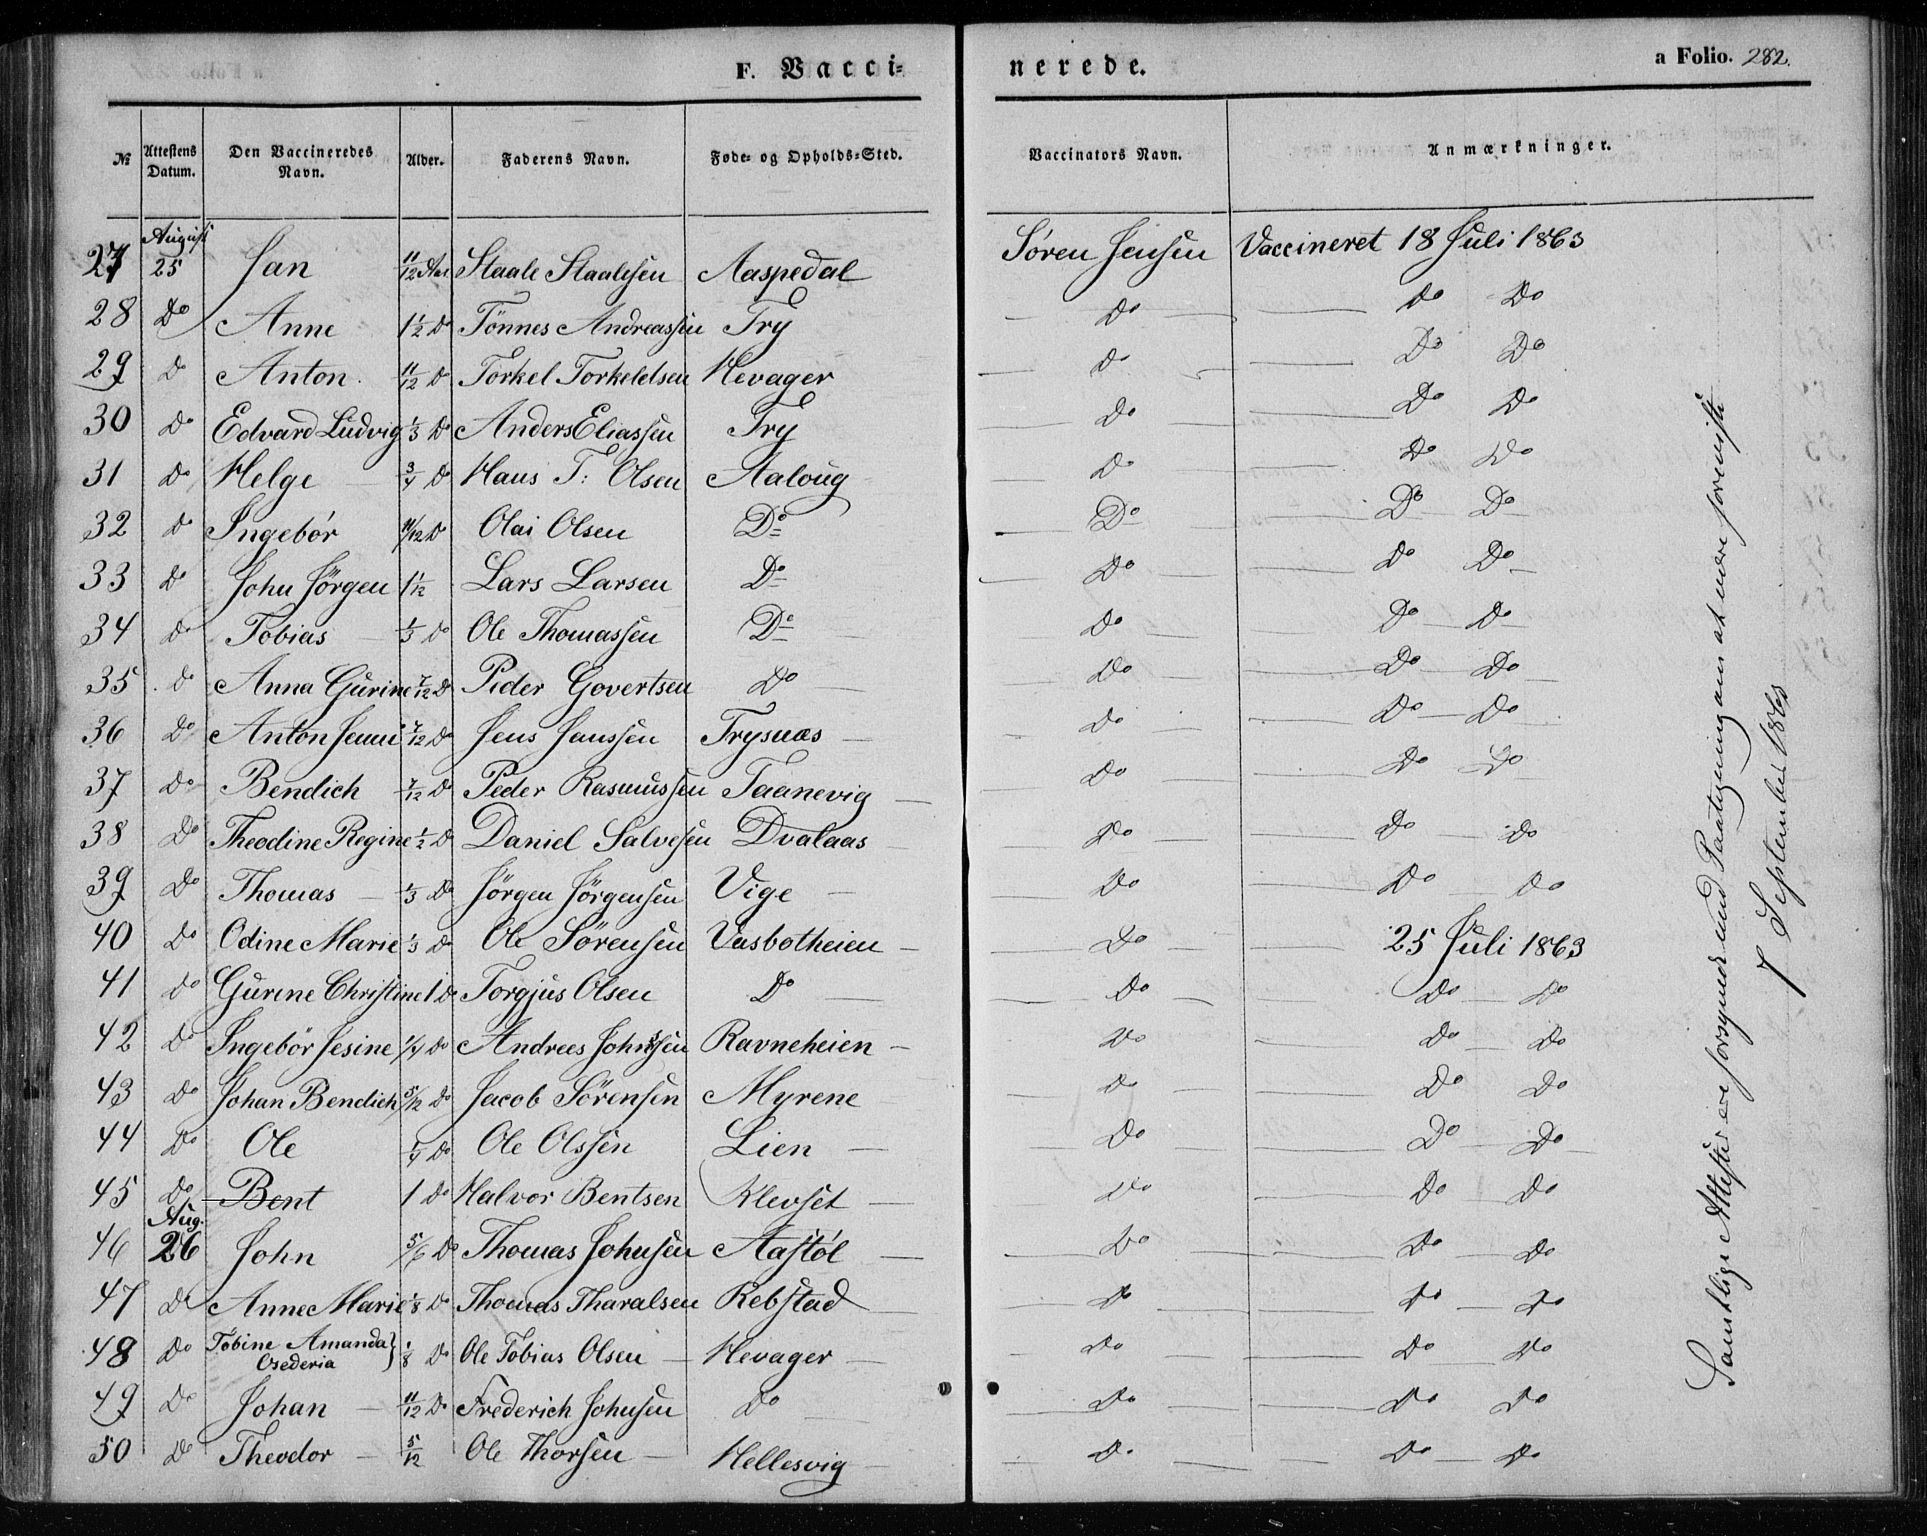 F. Vacci-
nerede.
a Folio. 282.
№ Attestens Datum. Den Vaccineredes Navn. Alder. Faderens Navn. Føde- og Opholds-Sted. Vaccinators Navn. Anmærkninger.
August
27 25 Jan 11/12 Aar Staale Staalesen Aaspedal Søren Jensen Vaccineret 18 Juli 1863
28 Do Anne 1 1/2 Do Tönnes Andreassen Try Do Do Do
29 Do Anton 11/12 Do Torkel Torkeldsen Hevager Do Do Do
30 Do Edvard Ludvig 1/3 Do Anders Eliassen Try Do Do Do
31 Do Helge 3/4 Do Hans T: Olsen Aaloug Do Do Do
32 Do Ingebör 11/12 Do Olai Olsen Do Do Do Do
33 Do John Jörgen 1 1/12 Lars Larsen Do Do Do Do
34 Do Tobias 1/3 Do Ole Thomassen Do Do Do Do
35 Do Anna Gurine 7/12 Do Peder Govertsen Do Do Do Do
36 Do Anton 7/12 Do Jens Janssen Trysnæs Do Do Do
37 Do Bendich 7/12 Do Peder Rasmussen Taanevig Do Do Do
38 Do Theodine Regine 1/2 Do Daniel Salvesen Dvalaas Do Do Do
39 Do Thomas 1/3 Do Jörgen Jörgensen Vige Do Do Do
40 Do Odine Marie 1/3 Do Ole Sörensen Vasbotheien Do 25 Juli 1863
41 Do Gurine Christine 1 Do Torgjus Olsen Do Do Do Do
42 Do Ingebör Jesine 1/4 Do Andrees Johnsen Ravneheien Do Do Do
43 Do Johan Bendich 5/12 Do Jacob Sörensen Myrene Do Do Do
44 Do Ole 1/4 Do Ole Olssen Lien Do Do Do
45 Do Bent 1 Do Halvor Bentsen Klevset Do Do Do
Aug.
46 26 John 5/6 Do Thomas Johnsen Aastöl Do Do Do
47 Do Anne Marie 1/8 Do Thomas Tharalsen Rebstad Do Do Do
48 Do Tobine Amanda 1/8 Do Ole Tobias Olsen Hevager Do Do Do
49 Do Johan 11/12 Do Frederich Johnsen Do Do Do Do
50 Do Theodor 5/12 Ole Thorsen Hellesvig Do Do Do
Samtlige Attester ere forsynede med Paategning om at være foreviste
7 September 1863